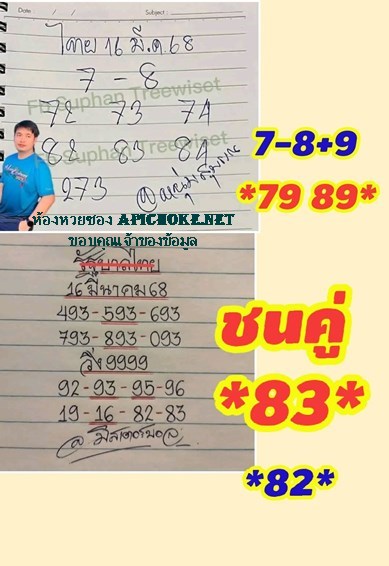 Date : / / Subject :
ไทย 16 มี.ค 68
7 - 8
FB Suphan Treewiset
72 73 74
82 83 84
FB Suphan Treewiset
273
7-8+9
*79 89*
ห้องหวยซอง APICHOKE.NET
ขอบคุณเจ้าของข้อมูล
รัฐบาลไทย
16 มีนาคม 68
493-593-693
793-893-093
วิ่ง 9999
92-93-95-96
19-16-82-83
ชนคู่
*83*
*82*